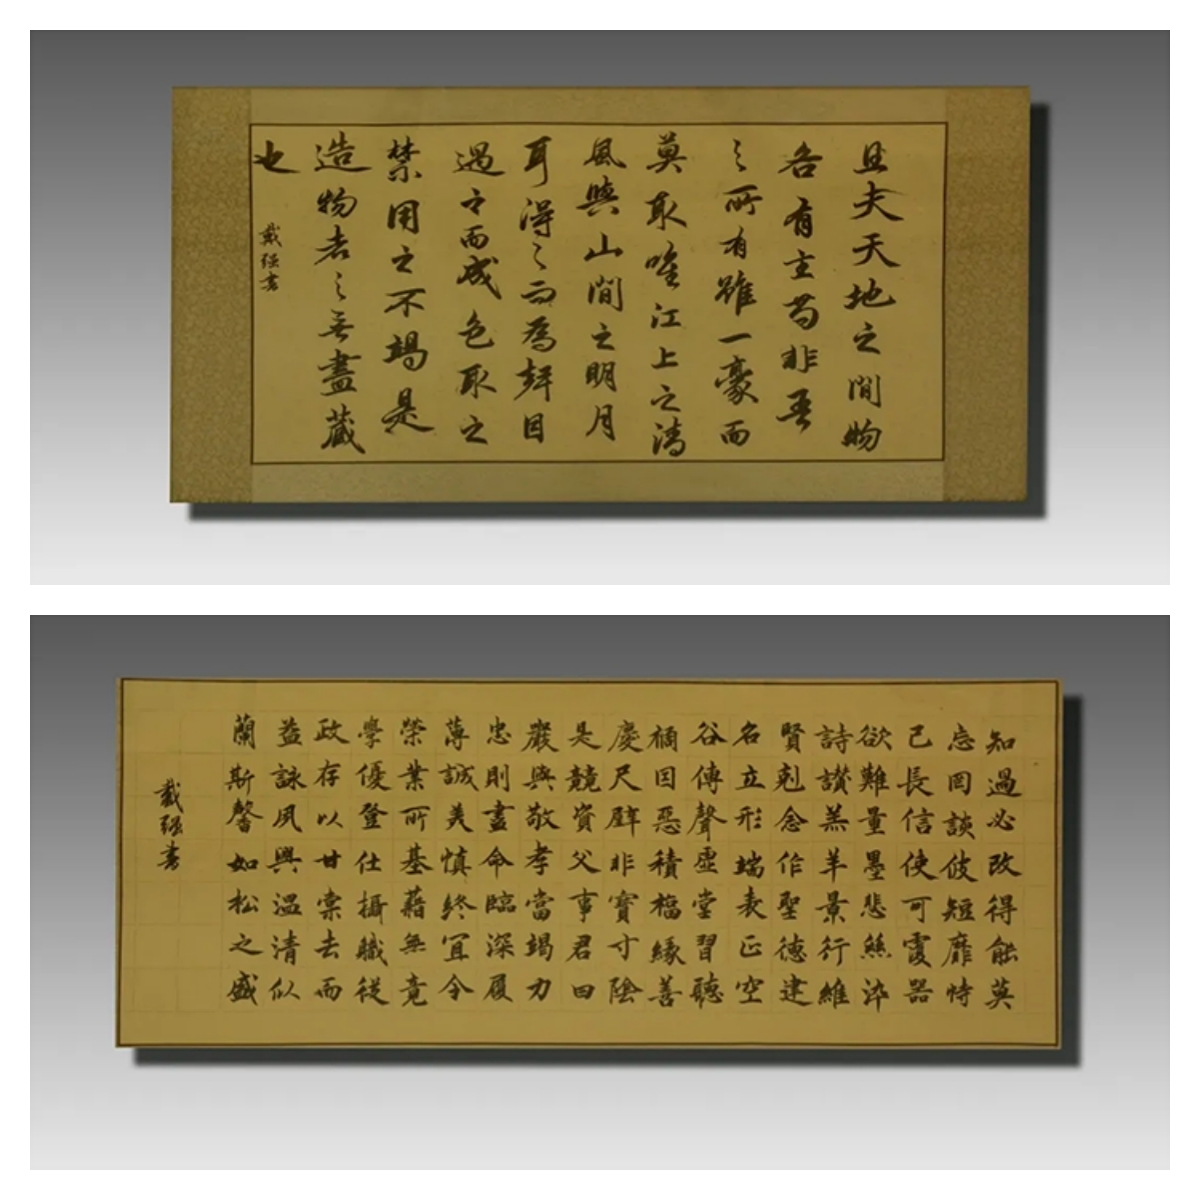 且夫天地之間物
各有主苟非吾
之所有雖一豪而
莫取唯江上之清
風與山間之明月
耳得之而為聲目
遇之而成色取之
禁用之不竭是
造物者之無盡藏
也
戴强書
知過必改得能莫
忘罔談彼短靡恃
己長信使可覆器
欲難量墨悲絲染
詩讚羔羊景行維
賢剋念作聖德建
名立形端表正空
谷傳聲虛堂習聽
禍因惡積福緣善
慶尺璧非寶寸陰
是競資父事君曰
嚴與敬孝當竭力
忠則盡命臨深履
薄誠美慎終宜令
榮業所基藉無竟
學優登仕攝職從
政存以甘棠去而
益詠夙興溫清似
蘭斯馨如松之盛
戴强書